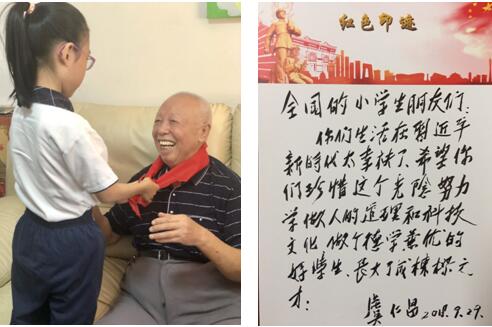 红色印迹
全国的小学生朋友们:
你们生活在习近平
新时代太幸伏了,希望你
们珍惜这个光陰努力
学做人的道理和科技
文化做个德学兼优的
好学生、長大了成棟樑之
才:
虞仁昌 2018.9.29.